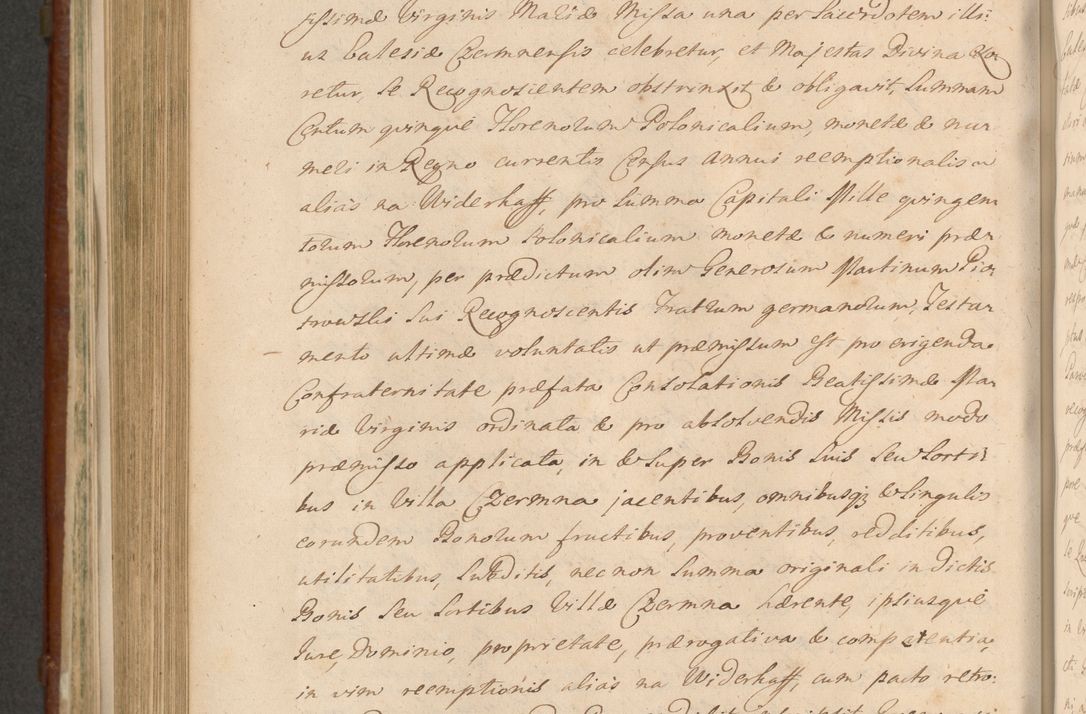 sissimæ Virginis Mariæ Missa una per sacerdotem illi:
us Ealesiæ Czermnensis celebretur, et Majestas Divina exo
retur, se Recognoscientem obstrinxit & obligavit, Summam
Centum quinque Florenorum Polonicalium, monetæ & nu=
meri in Regno currentis Census annui reemptionalis
alias na Widerkaff, pro summa Capitali Mille quingen
torum Florenorum Polonicalium monetæ & numeri præ=
missorum, per prædictum olim Generosum Martinum Pio=
trowski sui Recognoscentis Fratrum germanorum, Testa=
mento ultimæ voluntatis ut præmissum est pro erigenda
Confraternitate præfata Consolationis Beatissimæ Ma=
riæ Virginis ordinata & pro absolvendis Missis modo
præmisso applicata, in & super Bonis suis seu Sorti=
bus in Villa Czermna jacentibus, omnibusq; & singulis
eorundem Bonorum fructibus, proventibus, redditibus,
utilitatibus, subditis, nec non summa originali in dictis
Bonis seu sortibus Villæ Czermna hærente, ipsiusque
Jure, Dominio, proprietate, prærogativa & competentia,
in vim reemptionis alias na Widerkaff, cum pacto retro: